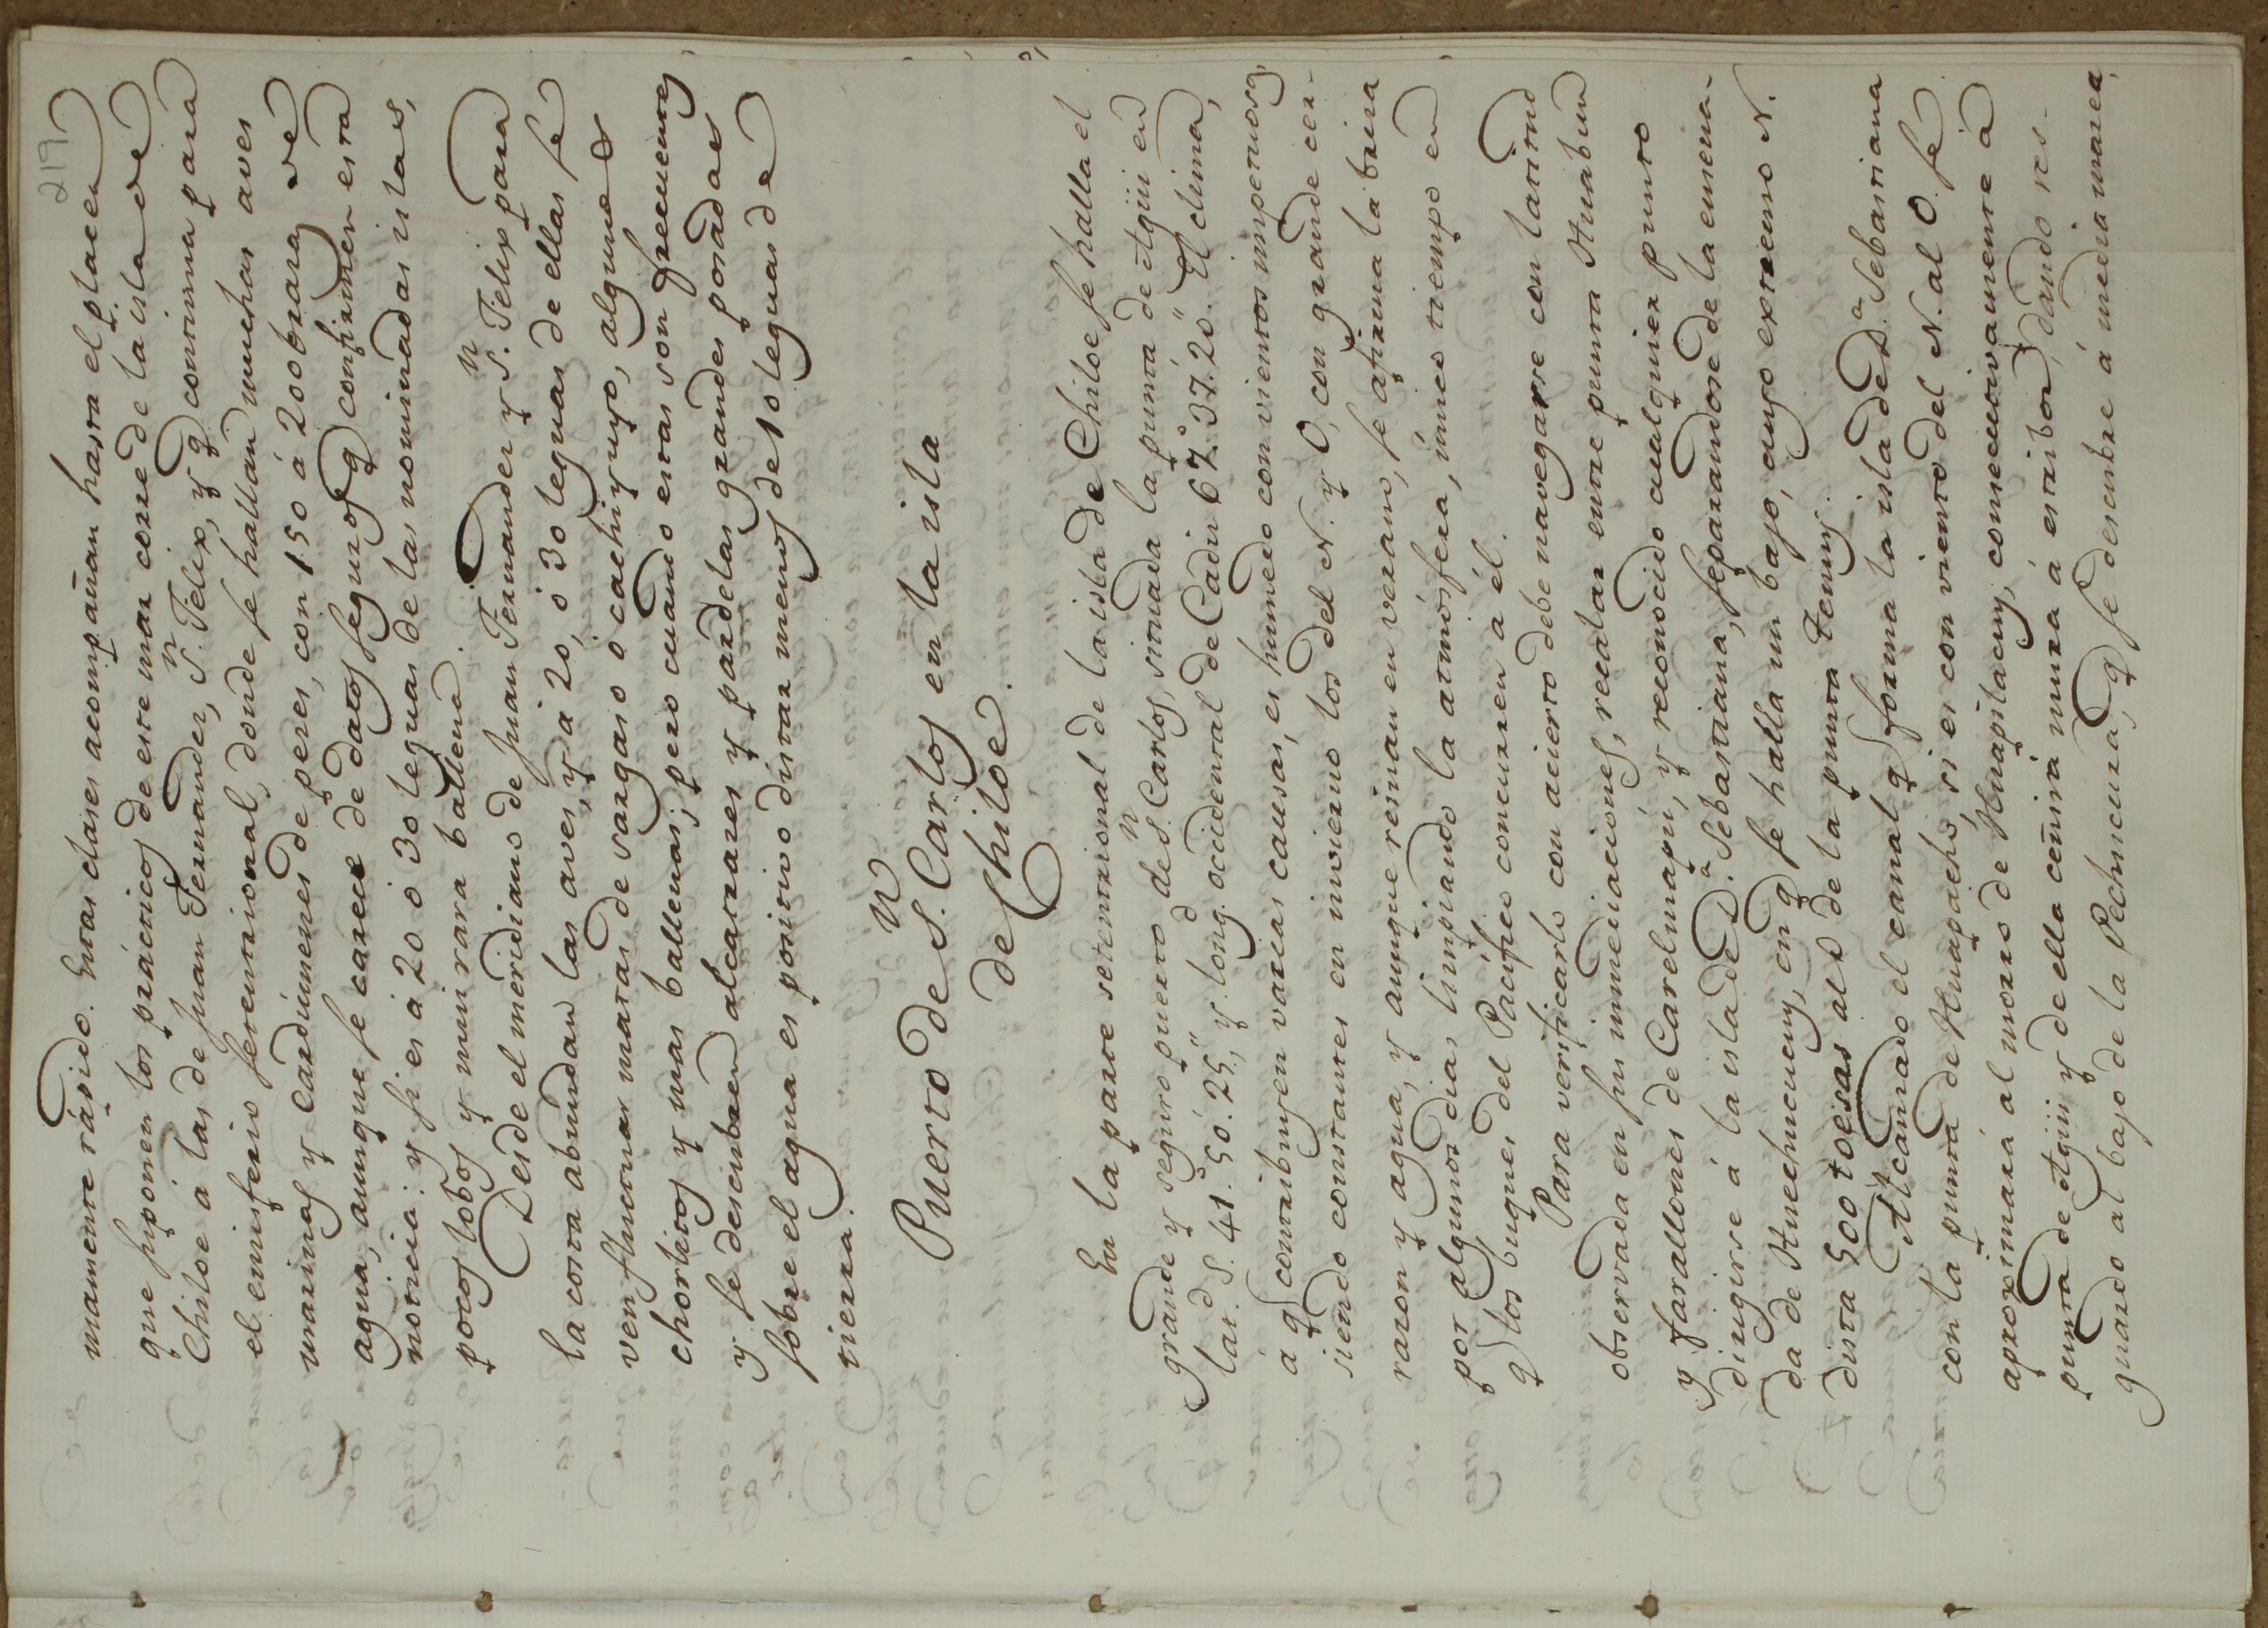 219
mamente rápido. Estas clases acompañan hasta el placer
que suponen los prácticos de este mar corre de la isla de
Chiloe á las de Juan Fernandez, S.n Felix, y q continua para
el emisferio septentrional, donde se hallan muchas aves
marinas y cardúmenes de peces, con 150 á 200 brazas de
agua, aunque se carece de datos seguros q confirmen esta
noticia: y si es á 20 o 30 leguas de las nominadas islas,
pocos lobos y mui rara ballena.
Desde el meridiano de Juan Fernandez y S.n Felix para
la costa abundan las aves, y á 20, ó 30 leguas de ellas se
ven fluctuar matas de sargaso o cachiyuyo, algunos
chorlitos y mas ballenas; pero cuando estas son frecuentes
y se descubren alcatraces y pardelas grandes posadas
sobre el agua es positivo distar menos de 10 leguas de
tierra.
Puerto de S.n Carlos en la isla
de Chiloe.
En la parte setentrional de la isla de Chiloe se halla el
grande y seguro puerto de S.n Carlos, situada la punta de Agüi en
lat.d S. 41.° 50. 25,″ y long.d occidental de Cadiz 67.° 37. 20.″ El clima,
á q contribuyen varias causas, es húmedo con vientos impetuosos,
siendo constantes en invierno los del N. y O, con grande cer-
razon y agua, y aunque reinan en verano, se afirma la briza
por algunos dias limpiando la atmósfera, único tiempo en
q los buques del Pacífico concurren á él.
Para verificarlo con acierto debe navegarse con latitud
observada en sus inmediaciones, recalar entre punta Huabun
y farallones de Carelmapú, y reconocido cualquier punto
dirigirse á la isla de D.a Sebastiana, separandose de la ensena-
da de Huechucucuy, en q se halla un bajo, cuyo extremo N.
dista 500 toesas al S de la punta Tenuy.
Alcanzado el canal q forma la isla de D.a Sebastiana
con la punta de Huapacho, si es con viento del N. al O. se
aproximará al morro de Huapilacuy, consecutivamente á
punta de Agüi y de ella ceñirá mura á estribor, dando res-
guardo al bajo de la Pechucura, q se descubre á media marea,